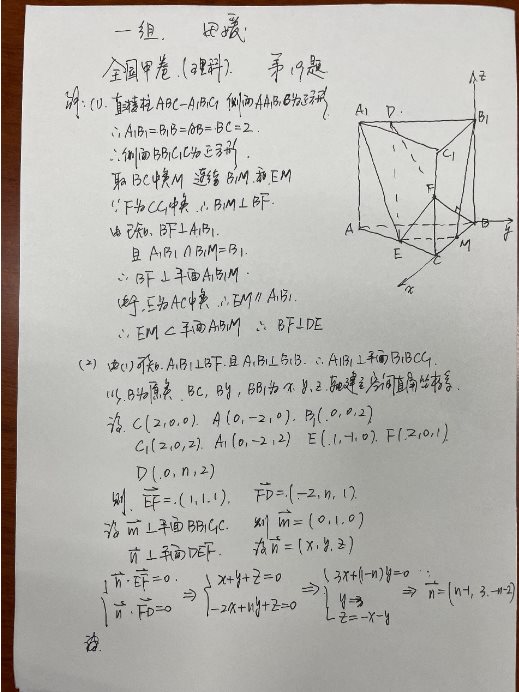 一组.
全国甲卷.(理科). 第19题
(1). 直棱柱ABC-A₁B₁C₁ 侧面AA₁B₁B为正方形
∴A₁B₁=B₁B=AB=BC=2.
∴侧面BB₁C₁C为正方形.
取BC中点M 连结B₁M. 和EM
∵F为CC₁中点. ∴B₁M⊥BF.
由已知. BF⊥A₁B₁.
且A₁B₁∩B₁M=B₁.
∴BF⊥平面A₁B₁M.
E为AC中点 ∴EM∥A₁B₁.
∴EM⊂平面A₁B₁M ∴BF⊥DE
(2) 由(1)可知. A₁B₁⊥BF. 且A₁B₁⊥B₁B. ∴A₁B₁⊥平面B₁BCC₁.
以B为原点. BC, By, BB₁为x. y. z. 轴建立空间直角坐标系.
设. C(2,0,0). A(0,-2,0). B₁(0,0,2).
C₁(2,0,2). A₁(0,-2,2) E(1,-1,0). F(2,0,1).
D(0,n,2)
则. EF=(1,1,1). FD=(-2,n,1).
设 m⊥平面BB₁C₁C. 则 m=(0,1,0)
n⊥平面DEF. 设 n=(x,y,z)
{n·EF=0. n·FD=0 ⇒ {x+y+z=0 -2x+ny+z=0 ⇒ {3x+(1-n)y=0 y=3 z=-x-y ⇒ n=(n-1, 3. -n-2)
A₁ D B₁ z
C₁
F
A B y
E M
C
x